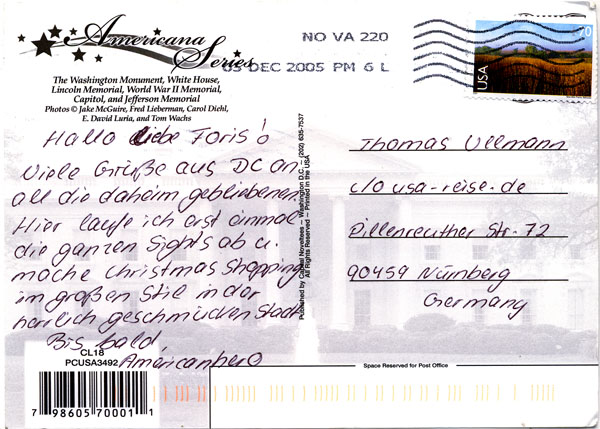 Americana Series
The Washington Monument, White House,
Lincoln Memorial, World War II Memorial,
Capitol, and Jefferson Memorial
Photos © Jake McGuire, Fred Lieberman, Carol Diehl,
E. David Luria, and Tom Wachs
NO VA 220
05 DEC 2005 PM 6 L
USA
70
Hallo liebe Foris!
Viele Grüße aus DC an
all die daheim gebliebenen.
Hier laufe ich erst einmal
die ganzen Sights ab u.
mache Christmas Shopping
im großen Stil in der
herrlich geschmückten Stadt
Bis bald,
Americanhero
Published by Capital Novelties – Washington D.C. – (202) 635-7537
All Rights Reserved – Printed in the USA
Thomas Ullmann
c/o usa-reise.de
Dillenreuther Str. 72
90459 Nürnberg
Germany
CL18
PCUSA3492
Space Reserved for Post Office
7 98605 70001 1